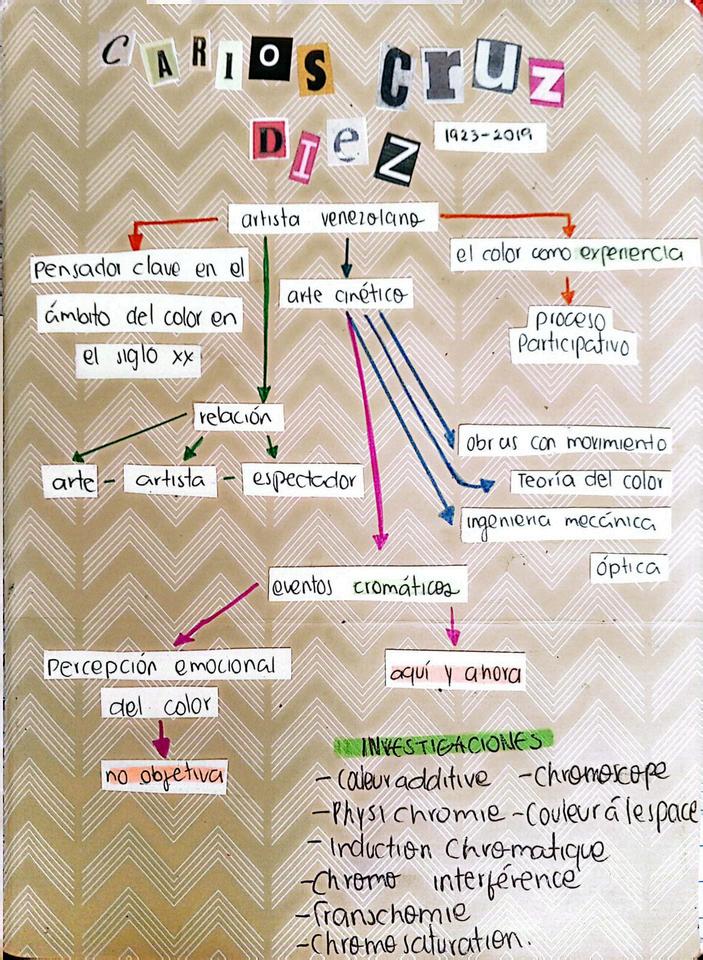 CARlOS Cruz
DIeZ 1923-2019
artista venezolano
Pensador clave en el
ámbito del color en
el siglo xx
arte cinético
el color como experiencia
proceso
Participativo
relación
arte - artista - espectador
obras con movimiento
Teoría del color
ingenieria mecánica
óptica
eventos cromáticos
Percepción emocional
del color
no objetiva
aquí y ahora
INVESTIGACIONES
- Coleur additive - Chromoscope
- Physichromie - Couleur á lespace
- Induction Chromatique
- Chromo interférence
- Transchomie
- Chromosaturation.